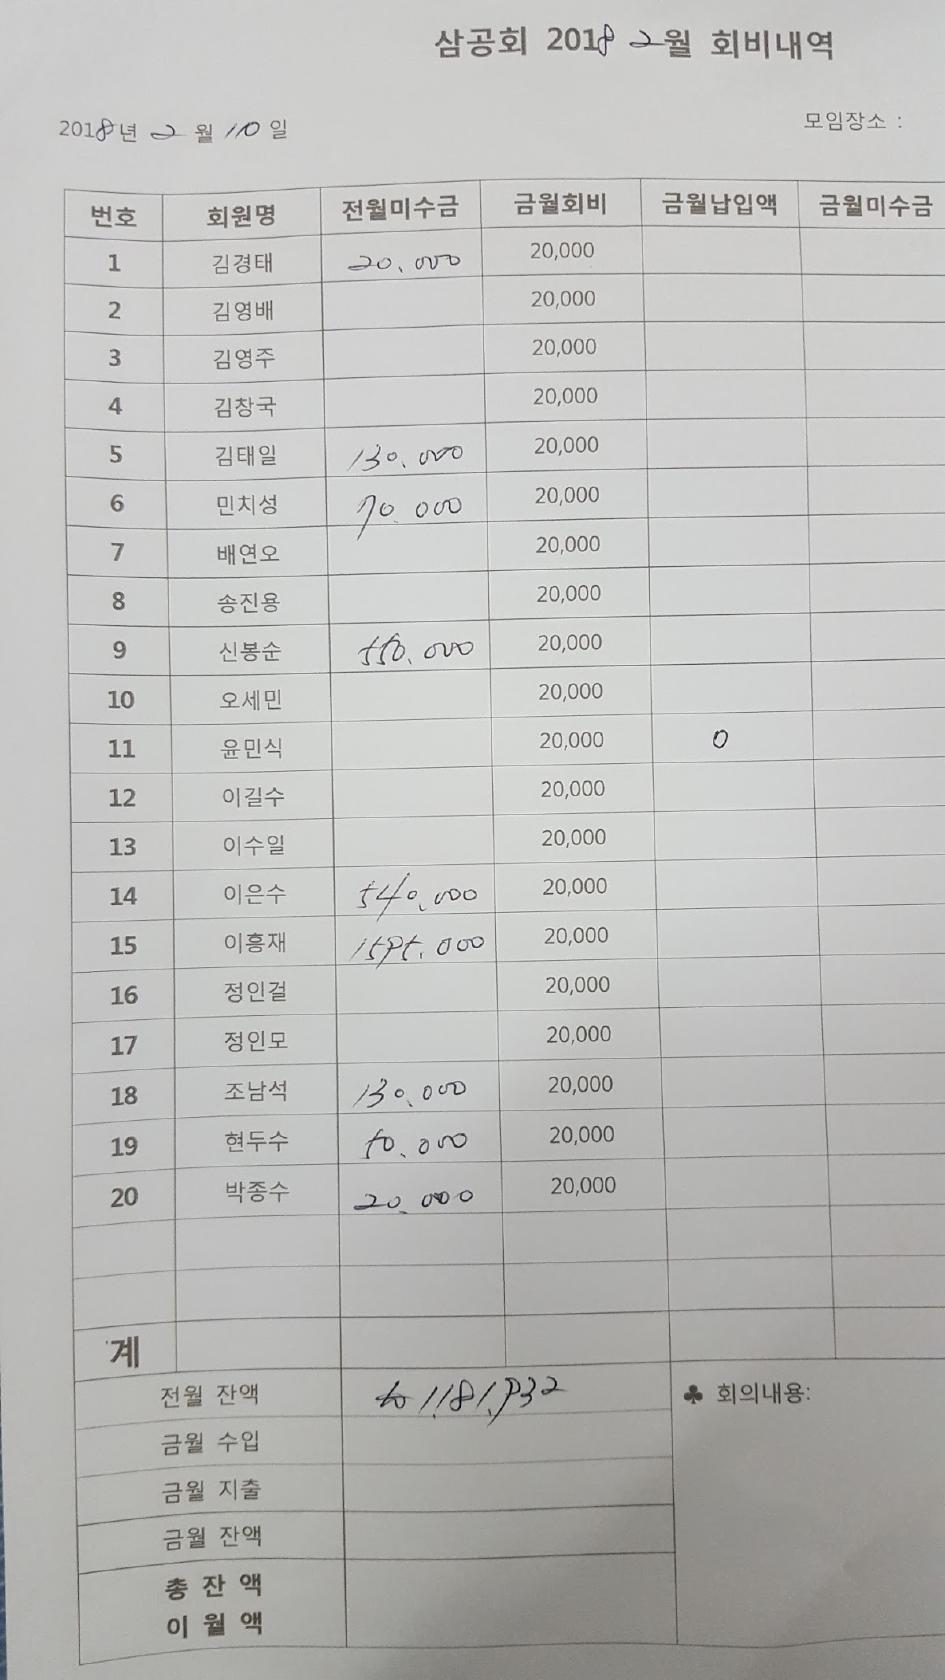 삼공회 2018 2월 회비내역
2018년 2 월 10 일 모임장소 :
번호 회원명 전월미수금 금월회비 금월납입액 금월미수금
1 김경태 20.000 20,000
2 김영배 20,000
3 김영주 20,000
4 김창국 20,000
5 김태일 130.000 20,000
6 민치성 70.000 20,000
7 배연오 20,000
8 송진용 20,000
9 신봉순 550.000 20,000
10 오세민 20,000
11 윤민식 20,000 0
12 이길수 20,000
13 이수일 20,000
14 이은수 540.000 20,000
15 이흥재 20,000
16 정인걸 20,000
17 정인모 20,000
18 조남석 130.000 20,000
19 현두수 50.000 20,000
20 박종수 20.000 20,000
계
전월 잔액 ♣ 회의내용:
금월 수입
금월 지출
금월 잔액
총 잔 액
이 월 액